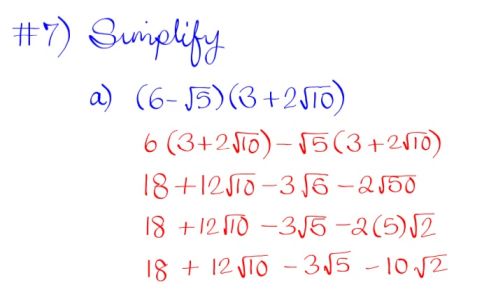 #7) Simplify
a) (6-√5)(3+2√10)
6(3+2√10)-√5(3+2√10)
18+12√10-3√5-2√50
18+12√10-3√5-2(5)√2
18+12√10-3√5-10√2